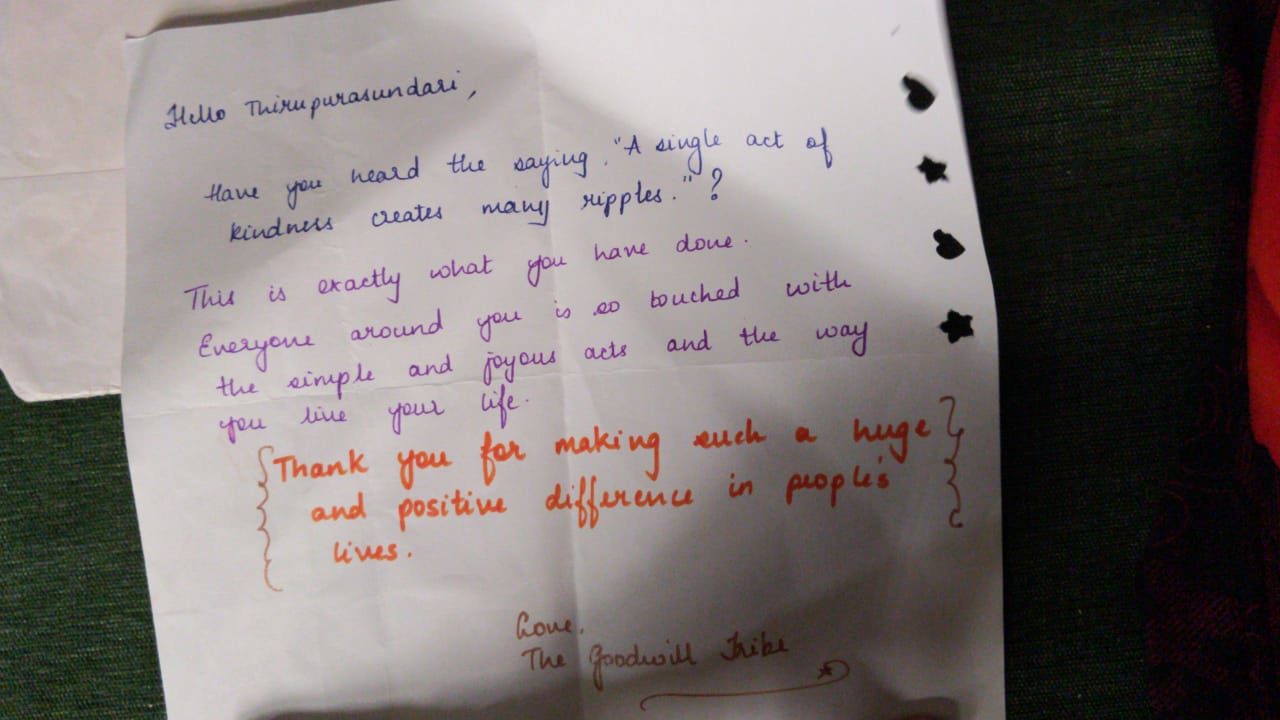 Hello Thirupurasundari,
Have you heard the saying. "A single act of
kindness creates many ripples." ?
This is exactly what you have done.
Everyone around you is so touched with
the simple and joyous acts and the way
you live your life.
Thank you for making such a huge
and positive difference in people's
lives.
Love.
The Goodwill Tribe